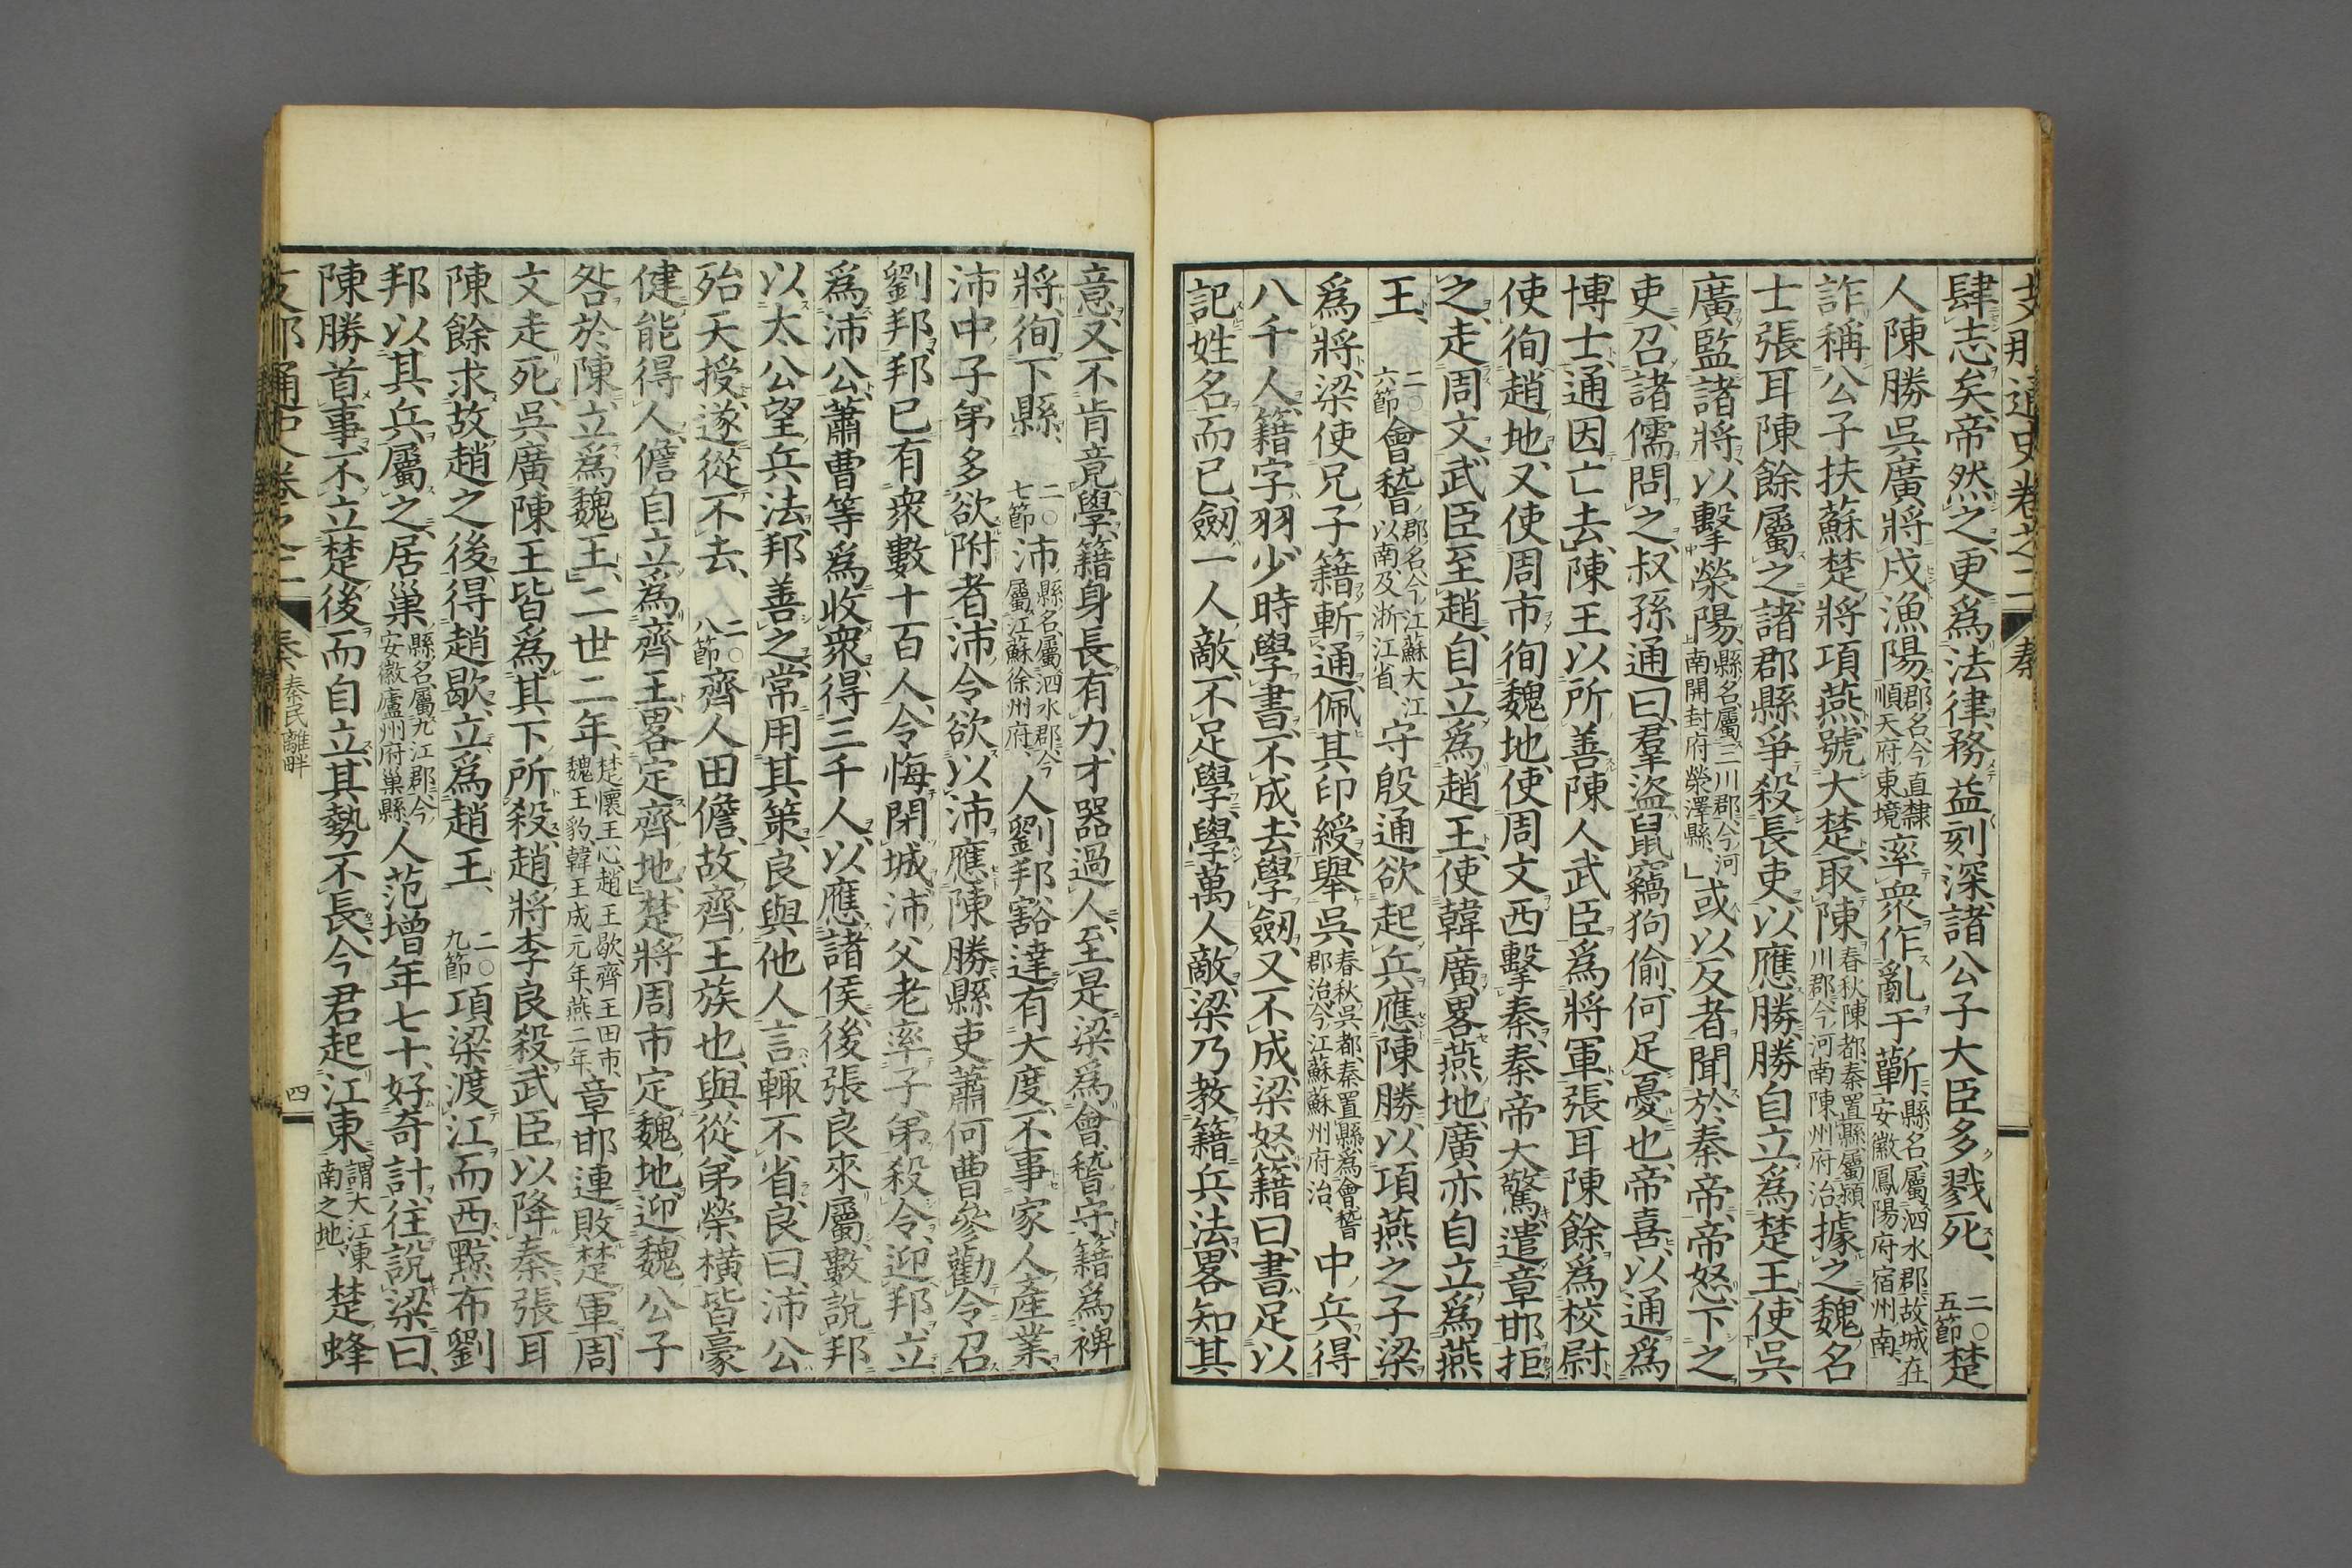 支那通史卷之二 秦
肆志矣、帝然之、更爲法律、務益刻深、諸公子大臣多戮死、二〇五節楚
人陳勝吳廣、將戍漁陽、郡名、今直隸順天府東境、率衆作亂于蘄、縣名、屬泗水郡、故城在安徽鳳陽府宿州南、
詐稱公子扶蘇楚將項燕、號大楚、取陳、春秋陳都、秦置縣、屬潁川郡、今河南陳州府治、據之、魏名
士張耳陳餘屬之、諸郡縣爭殺長吏、以應勝、勝自立爲楚王、使吳
廣監諸將、以擊滎陽、縣名、屬三川郡、今河南開封府滎澤縣、或以反者聞於秦帝、帝怒、下之
吏、召諸儒問之、叔孫通曰、羣盜鼠竊狗偷、何足憂也、帝喜、以通爲
博士、通因亡去、陳王以所善陳人武臣爲將軍、張耳陳餘爲校尉、
使徇趙地、又使周市徇魏地、使周文西擊秦、秦帝大驚、遣章邯拒
之、走周文、武臣至趙、自立爲趙王、使韓廣畧燕地、廣亦自立爲燕
王、二〇六節會稽郡名、今江蘇大江以南、及浙江省、守殷通欲起兵應陳勝、以項燕之子梁
爲將、梁使兄子籍斬通、佩其印綬、舉吳春秋吳都、秦置縣、爲會稽郡治、今江蘇蘇州府治、中兵、得
八千人、籍字羽、少時學書、不成、去學劒、又不成、梁怒、籍曰、書足以
記姓名而已、劒一人敵、不足學、學萬人敵、梁乃教籍兵法、畧知其
意、又不肯竟學、籍身長有力、才器過人、至是梁爲會稽守、籍爲裨
將、徇下縣、二〇七節沛縣名、屬泗水郡、今屬江蘇徐州府、人劉邦、豁達有大度、不事家人產業、
沛中子弟多欲附者、沛令欲以沛應陳勝、縣吏蕭何曹參勸令召
劉邦、邦已有衆數十百人、令悔閉城、沛父老率子弟殺令、迎邦立
爲沛公、蕭曹等爲收衆、得三千人、以應諸侯、後張良來屬、數說邦
以太公望兵法、邦善之、常用其策、良與他人言、輒不省、良曰、沛公
殆天授、遂從不去、二〇八節齊人田儋、故齊王族也、與從弟榮橫皆豪
健能得人、儋自立爲齊王、畧定齊地、楚將周市定魏地、迎魏公子
咎於陳、立爲魏王、二世二年、楚懷王心、趙王歇、齊王田市、魏王豹、韓王成元年、燕二年、章邯連敗楚軍、周
文走死、吳廣陳王皆爲其下所殺、趙將李良殺武臣、以降秦、張耳
陳餘求故趙之後、得趙歇、立爲趙王、二〇九節項梁渡江而西、黥布劉
邦以其兵屬之、居巢縣名、屬九江郡、今安徽廬州府巢縣、人范增年七十、好奇計、往說梁曰、
陳勝首事、不立楚後而自立、其勢不長、今君起江東、謂大江東南之地、楚蜂
支那通史卷之二 秦 秦民離畔 四